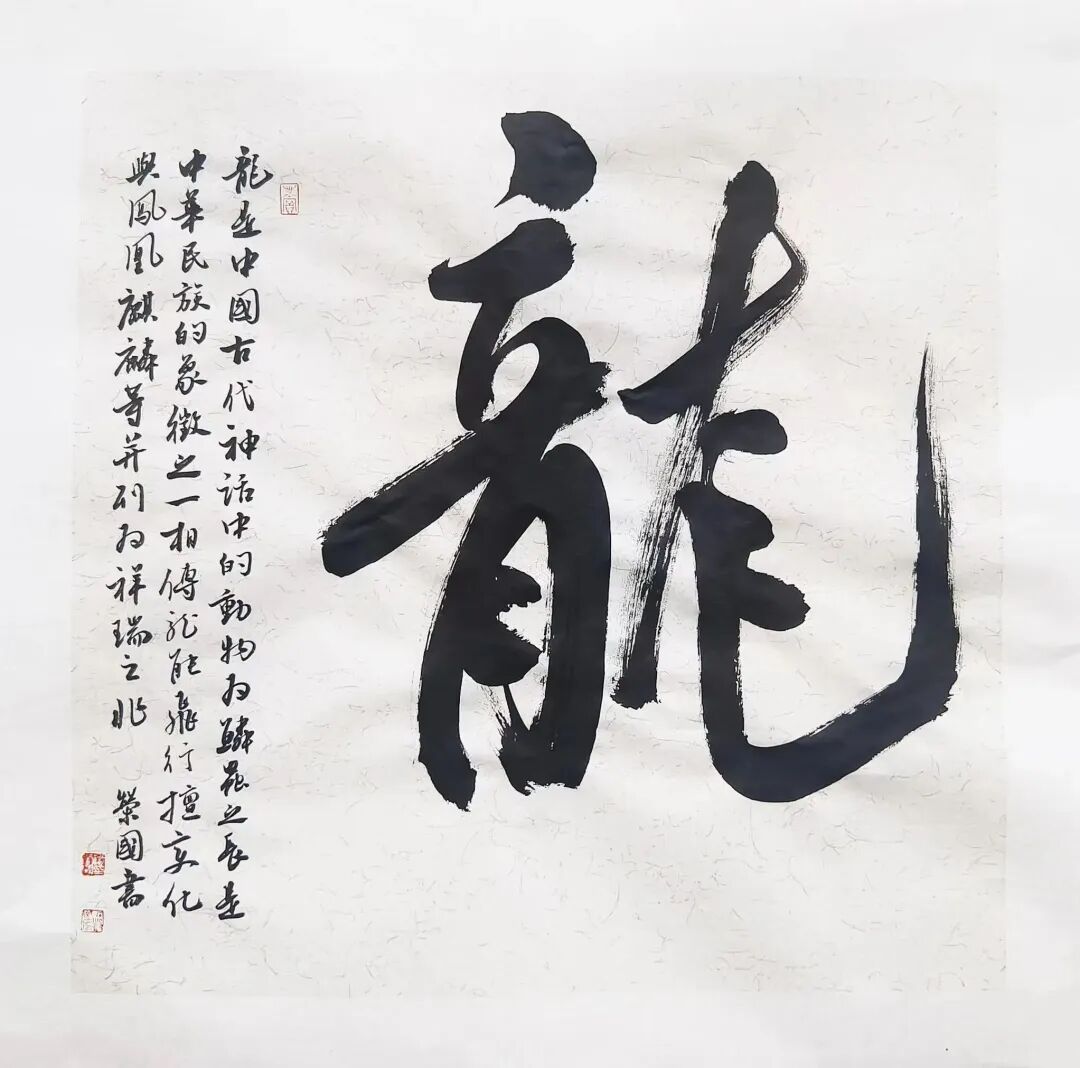 龍
龍是中國古代神話中的動物为鱗蟲之長是
中華民族的象徵之一相傳龙能飛行擅变化
與鳳凰麒麟等并列为祥瑞之兆
榮國書